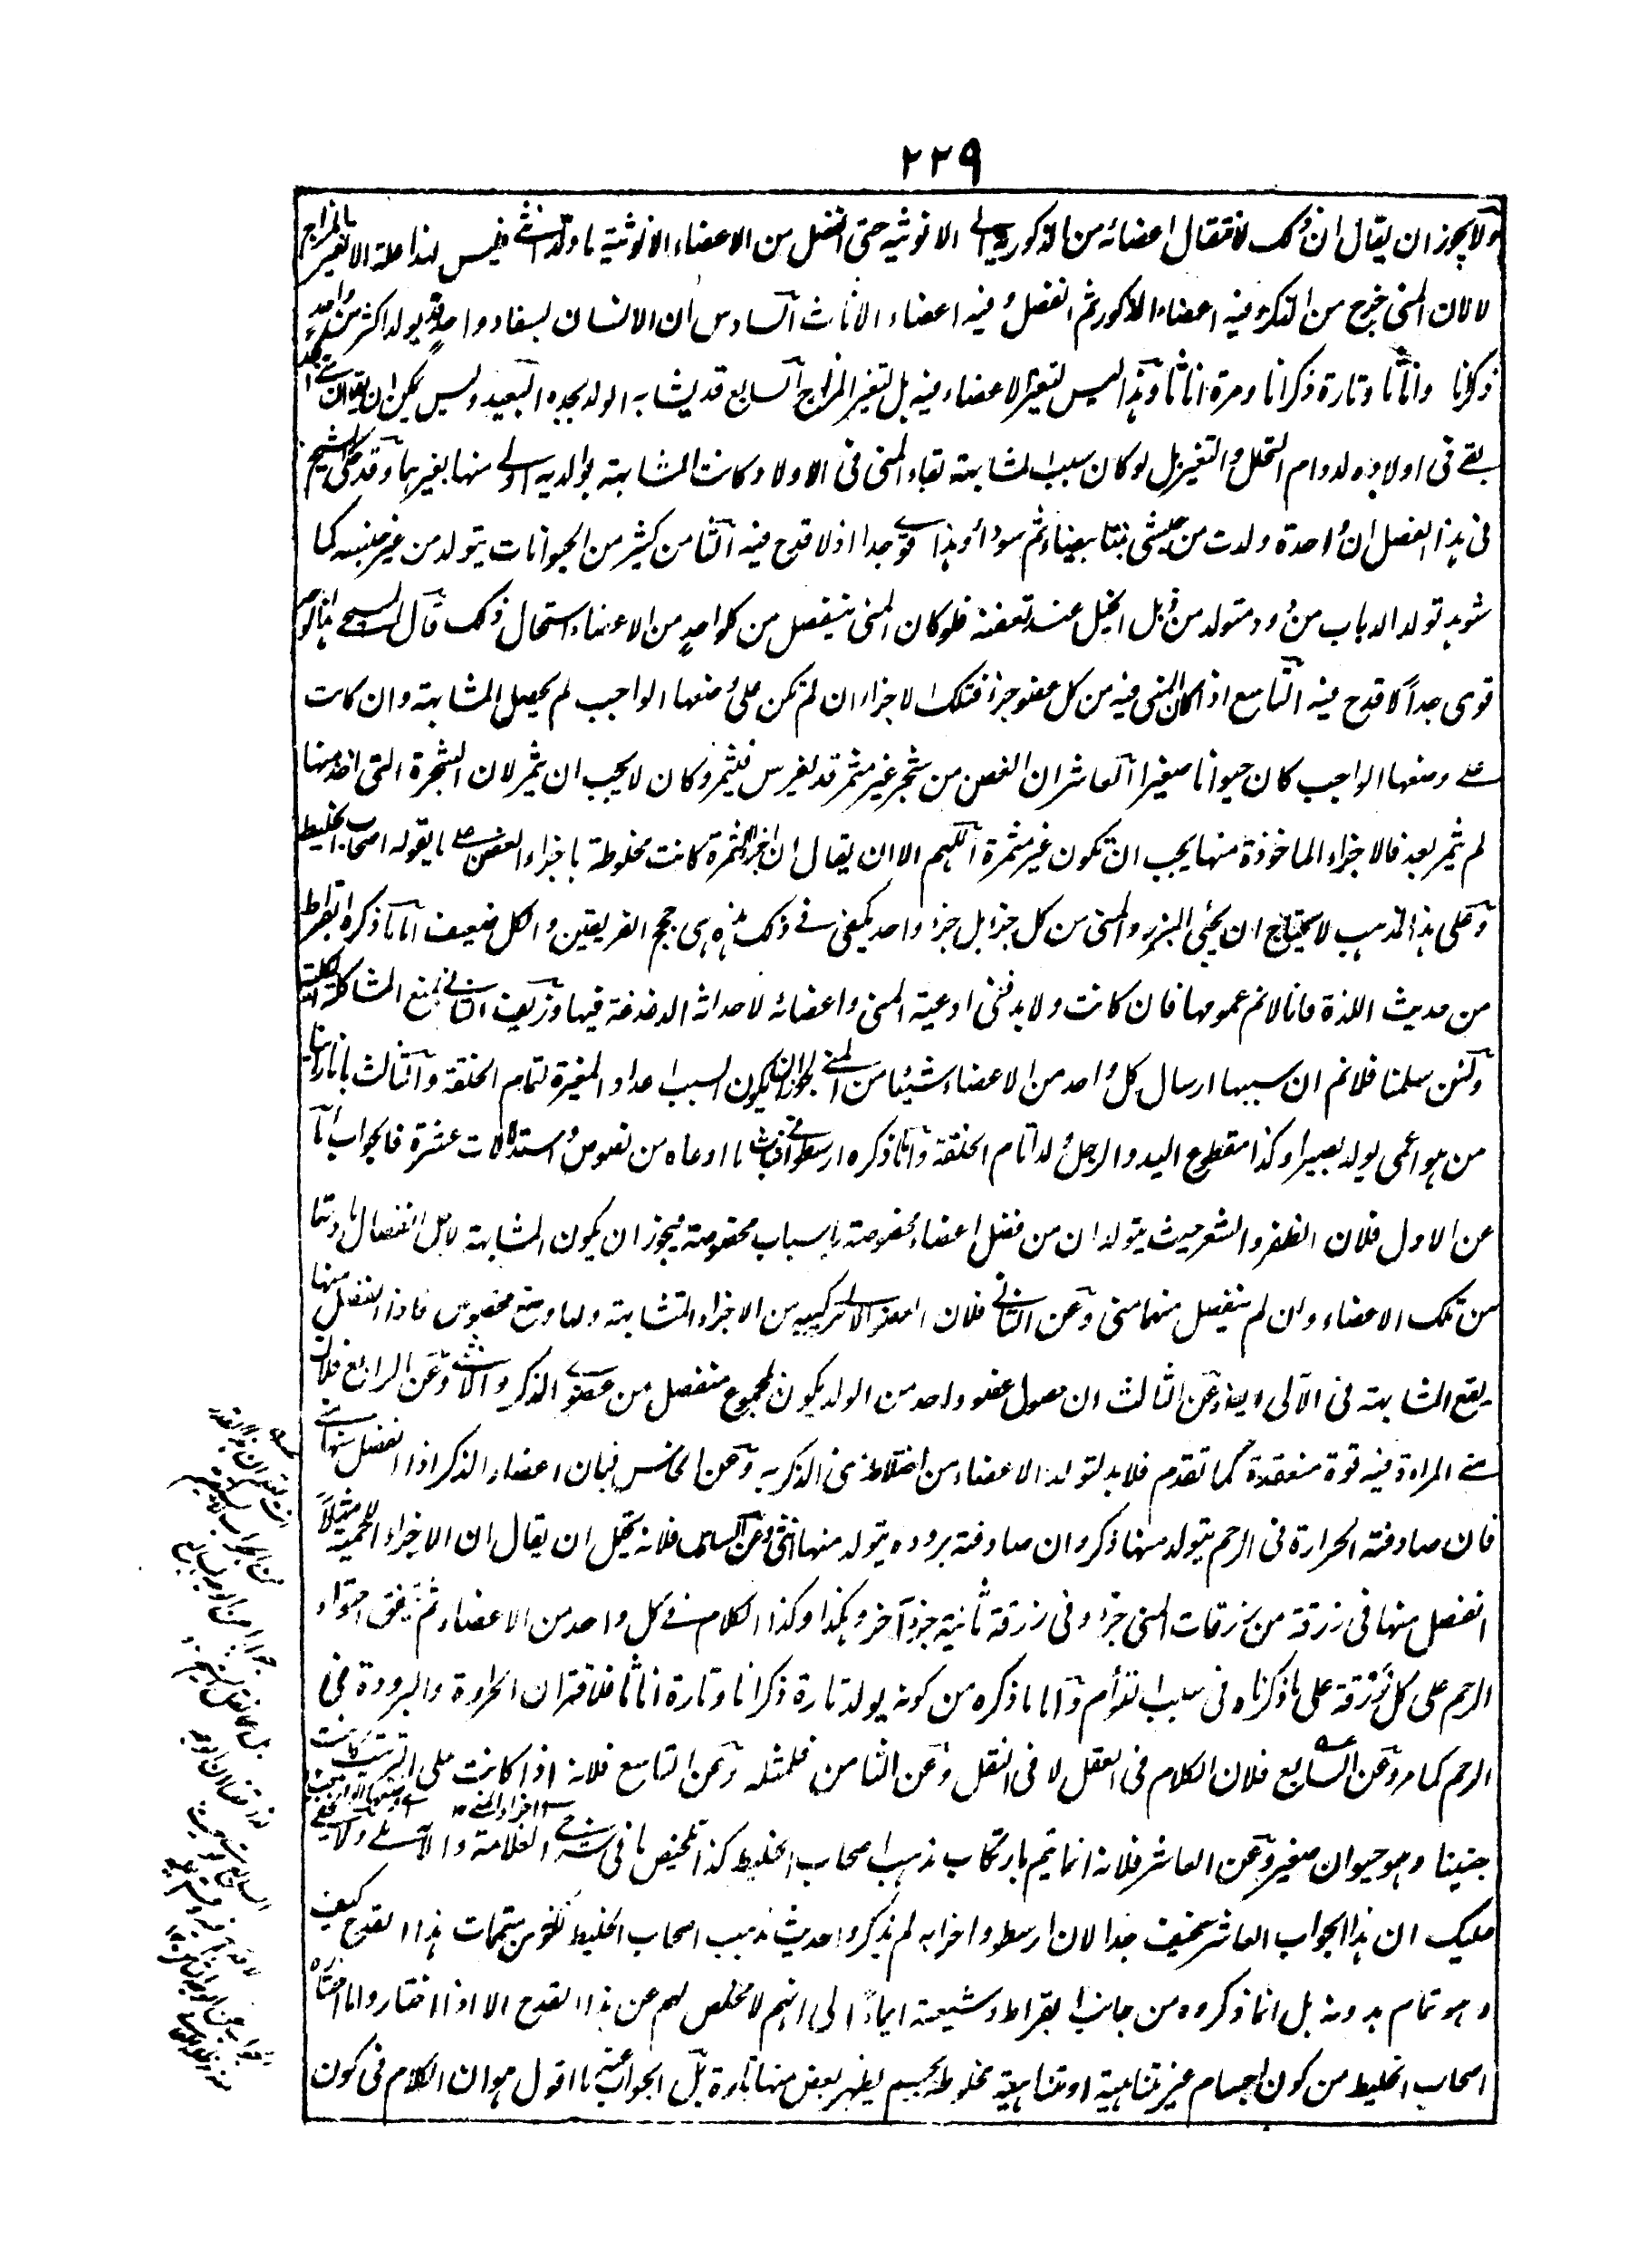 ٢٢٩
ولا يجوز ان يقال ان ذلك لانتقال اعضائه من الذكورية الى الانوثية حتى انفصل من الاعضاء الانوثية ما ولد انثى فليس لهذا علة الا تغير المزاج
لا لان المنى خرج من الذكر وفيه اعضاء الذكور ثم انفصل وفيه اعضاء الاناث السادس ان الانسان بسفاد واحد قد يولد اكثر من واحد
ذكرانا واناثا وتارة ذكرانا ومرة اناثا وهذا ليس لتغير الاعضاء فيه بل لتغير المزاج السابع قد يشابه الولد بجده البعيد وليس يمكن ان يقال
بقى فى اولاده لدوام التحلل والتغير بل لو كان سبب المشابهة بقاء المنى فى الاولاد كانت المشابهة بوالديه اولى منها بغيرهما وقد حكى الشيخ
فى هذا الفصل ان واحدة ولدت من حبشى بنتا بيضاء ثم سوداء وهذا قوى جدا اذ لا قدح فيه الثامن كثير من الحيوانات يتولد من غير جنسه كما
شوهد تولد الذباب من دود متولد من زبل الخيل عند تعفنه فلو كان المنى ينفصل من كل واحد من الاعضاء استحال ذلك قال المسيحى هذا الوجه
قوى جداً لا قدح فيه التاسع اذا كان المنى فيه من كل عضو جزء فتلك الاجزاء ان لم تكن على وضعها الواجب لم يحصل المشابهة وان كانت
على وضعها الواجب كان حيوانا صغيرا العاشر ان الغصن من شجر غير مثمر قد يغرس فيثمر وكان لا يجب ان يثمر لان الشجرة التى اخذ منها
لم يثمر بعد فالاجزاء الماخوذة منها يجب ان تكون غير مثمرة اللهم الا ان يقال ان اجزاء الثمرة كانت مخلوطة باجزاء الغصن على ما يقوله اصحاب الخليط
وعلى هذا المذهب لا يحتاج ان يجئ البزر والمنى من كل جزء بل جزء واحد يكفى فى ذلك هذه هى حجج الفريقين والكل ضعيف اما ما ذكره ابقراط
من حديث اللذة فانا لا نم عمومها فان كانت ولا بد ففى اوعية المنى واعضائه لاحداثه الدغدغة فيها وتزييف الثانى بمنع المشاكلة الكلية
ولئن سلمنا فلا نم ان سببها ارسال كل واحد من الاعضاء شيئا من المنى لجواز ان يكون السبب اعداد المغيرة لتمام الخلقة والثالث بانا راينا
من هو اعمى يولد بصيرا وكذا مقطوع اليد والرجل ولد تام الخلقة واما ما ذكره ارسطو فى اثبات ما ادعاه من نصوص استدلالات عشرة فالجواب اما
عن الاول فلان الظفر والشعر حيث يتولدان من فضل اعضاء مخصوصة باسباب مخصوصة فيجوز ان يكون المشابهة لاجل انفصال مادتها
من تلك الاعضاء وان لم ينفصل منهما منى وعن الثانى فلان العضو الآلى تركيبه من الاجزاء المتشابهة ولها وضع مخصوص فاذا انفصل منها
يقع المشابهة فى الآلى ايضا وعن الثالث ان حصول عضو واحد من الولد يكون لمجموع منفصل من عضوى الذكر والانثى وعن الرابع فلان
منى المراءة فيه قوة منعقدة كما تقدم فلا بد لتولد الاعضاء من اختلاط منى الذكر به وعن الخامس فبان اعضاء الذكر اذا انفصل منها منى
فان صادفته الحرارة فى الرحم يتولد منها ذكر وان صادفته برودة يتولد منها انثى وعن السادس فلانه يحتمل ان يقال ان الاجزاء اللحمية مثلاً
انفصل منها فى زرقة من زرقات المنى جزء وفى زرقة ثانية جزء آخر وهكذا وكذا الكلام فى كل واحد من الاعضاء ثم يتفق احتواء
الرحم على كل زرقة على ما ذكرناه فى سبب التوأم واما ما ذكره من كونه يولد تارة ذكرانا وتارة اناثا فلاقتران الحرارة والبرودة فى
الرحم كما مر وعن السابع فلان الكلام فى العقل لا فى النقل وعن الثامن فلمثله وعن التاسع فلانه اذا كانت على الترتيب كانت
جنينا وهو حيوان صغير وعن العاشر فلانه انما يتم بارتكاب مذهب اصحاب الخليط كذا تلخيص ما فى شرحى العلامة والآملى ولا يخفى
عليك ان هذا الجواب العاشر سخيف جدا لان ارسطو واحزابه لم يذكروا حديث مذهب اصحاب الخليط لكونه من تتمات هذا القدح كيف
وهو تمام بدونه بل انما ذكروه من جانب ابقراط وشيعته ايماءً الى انهم لا مخلص لهم عن هذا القدح الا اذا اختاروا ما اختاره
اصحاب الخليط من كون اجسام غير متناهية او متناهية مخلوطة بجسم يظهر بعض منها تارة بل الجواب عنه ما اقول هو ان الكلام فى كون